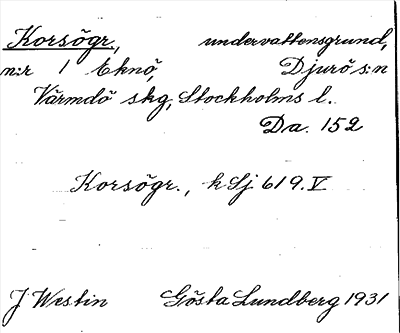 Korsögr., undervattensgrund,
n:r 1 Eknö, Djurö s:n
Värmdö skg, Stockholms l.
Da. 152
Korsögr., k Sj 619.V
J Westin Gösta Lundberg 1931